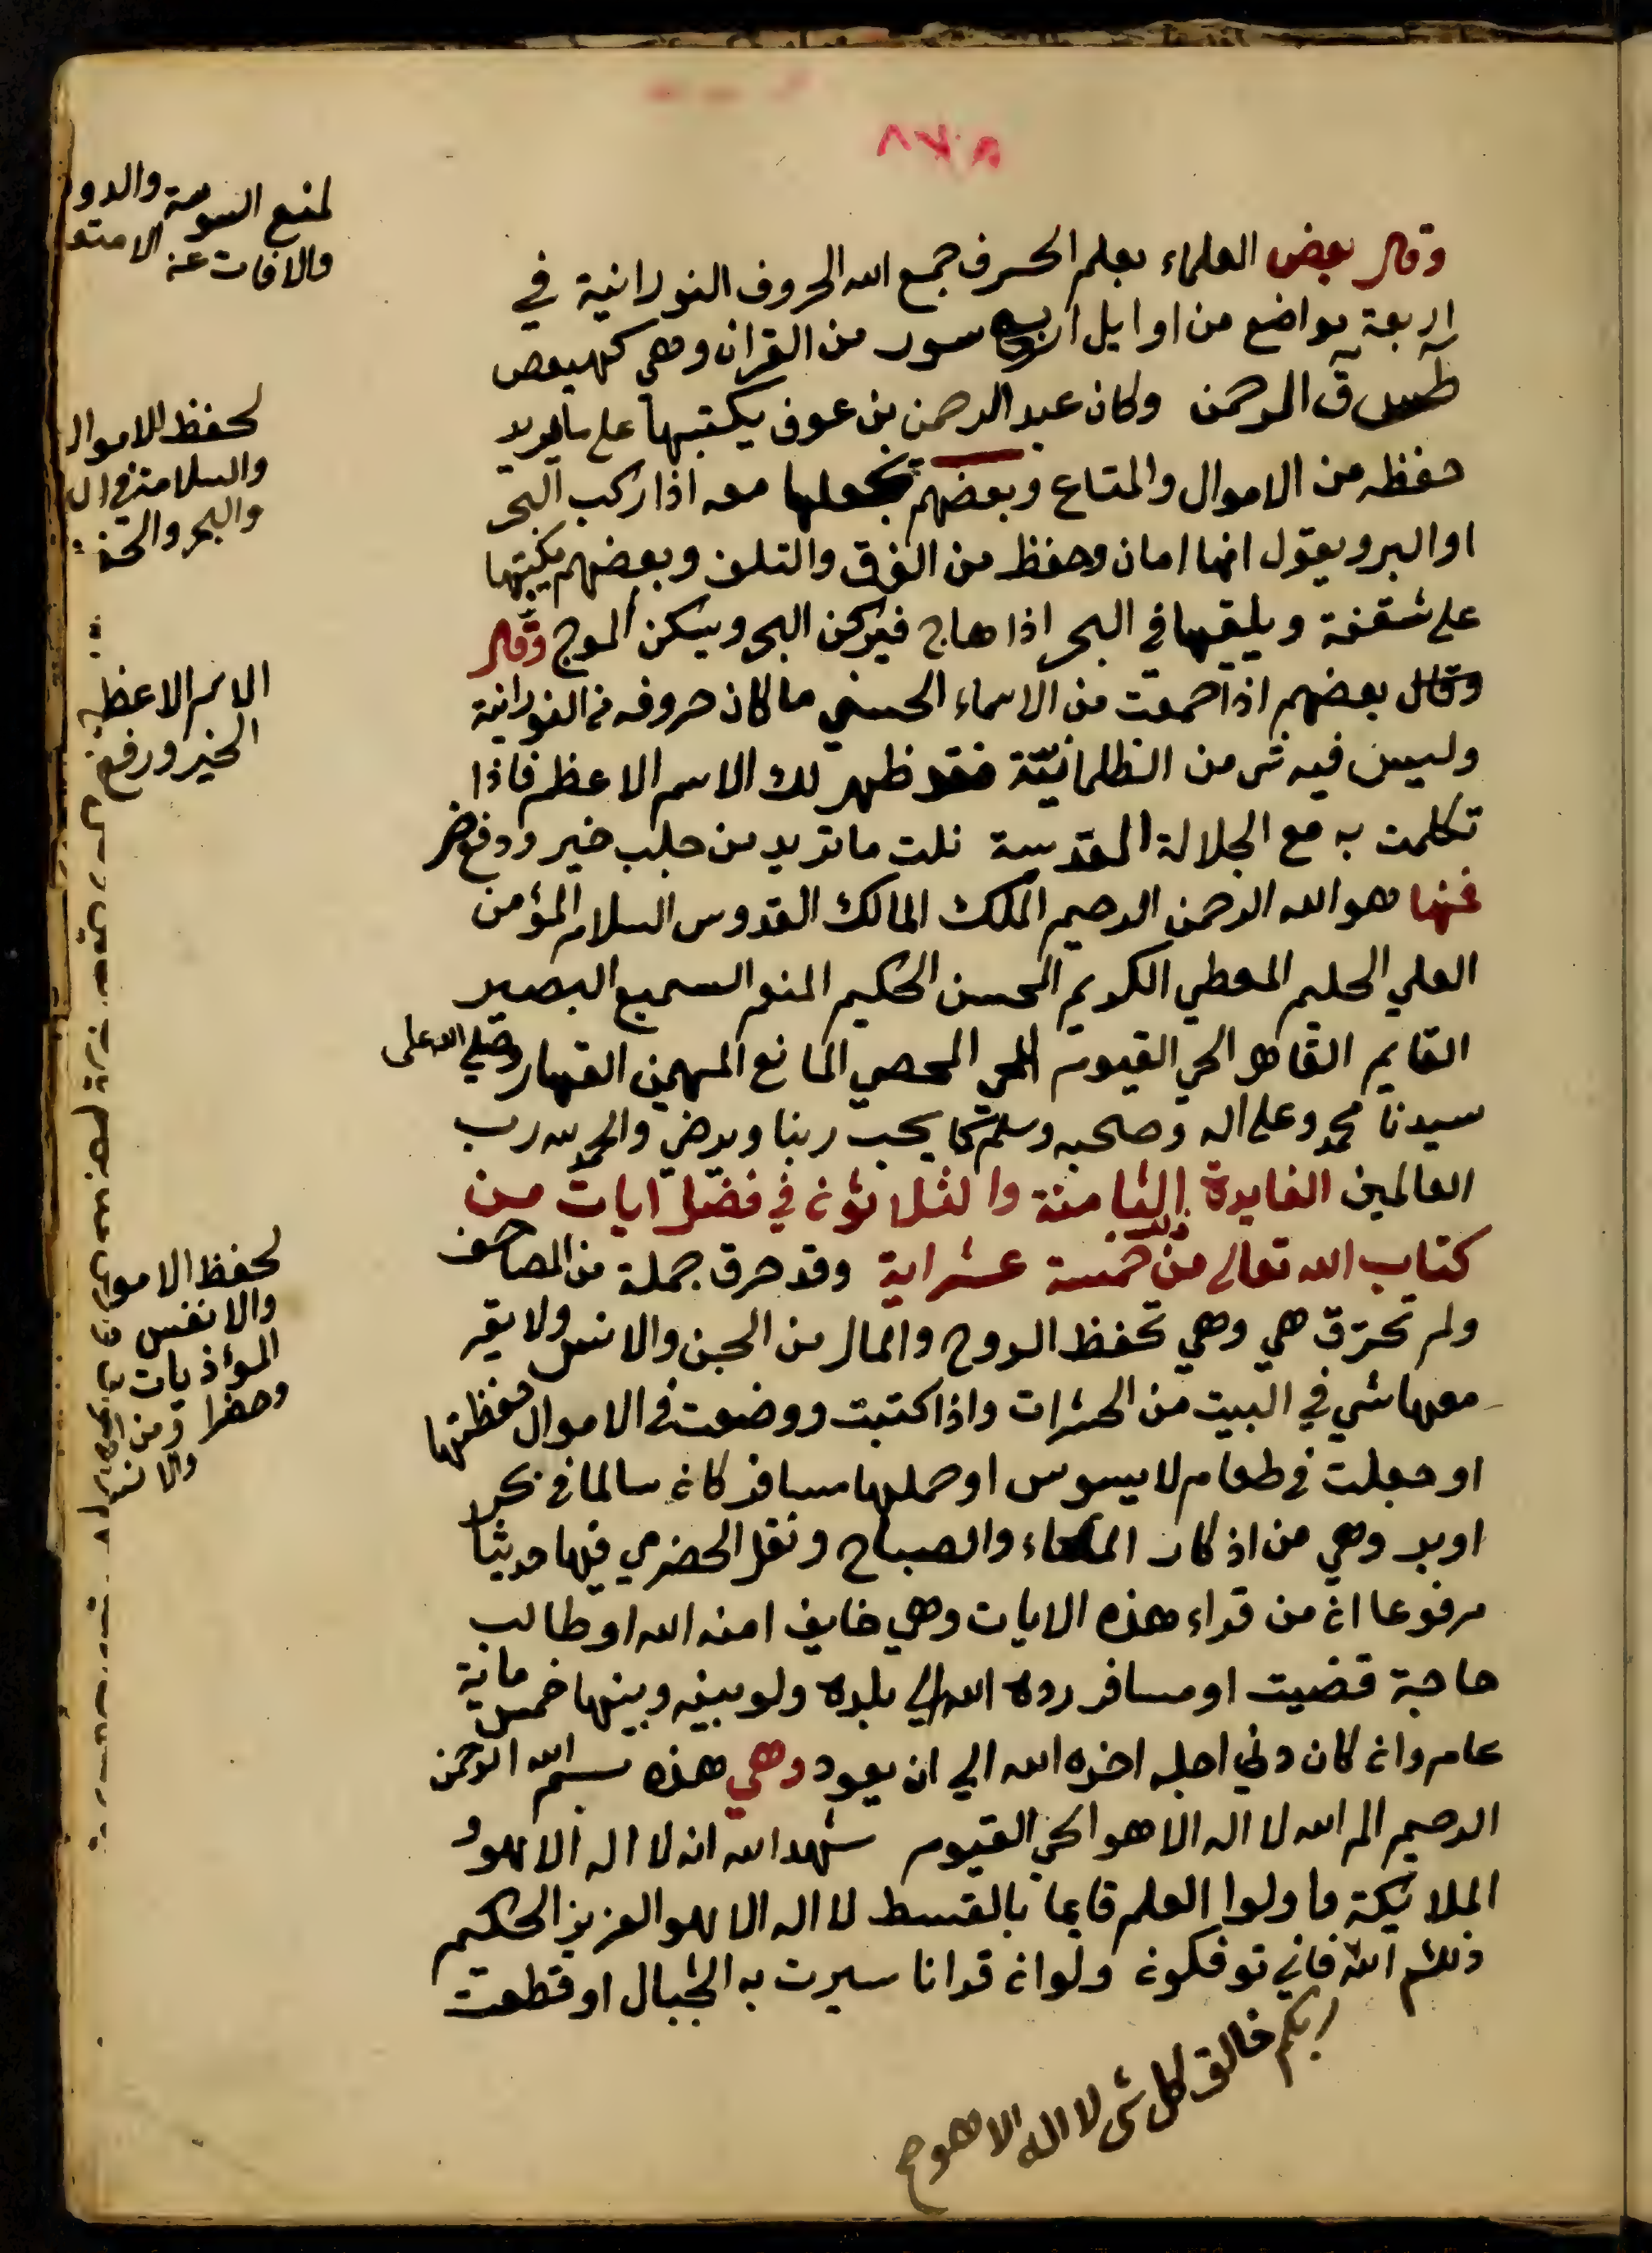 ٨٧٥
وقال بعض العلماء بعلم الحرف جمع الله الحروف النورانية في
اربعة مواضع من اوايل اربع سور من القران وهي كهيعص
طس ق الرحمن وكان عبد الرحمن بن عوف يكتبها على ما يريد
حفظه من الاموال والمتاع وبعضهم يجعلها معه اذا ركب البحر
او البر ويقول انها امان وحفظ من الغرق والتلف وبعضهم يكتبها
على شقفة ويلقيها في البحر اذا هاج فيركن البحر ويسكن الموج وقال
وقال بعضهم اذا جمعت من الاسماء الحسنى ما كان حروفه من النورانية
وليس فيه شي من الظلمانية فقد ظهر لك الاسم الاعظم فاذا
تكلمت به مع الجلالة المقدسة نلت ما تريد من جلب خير ودفع ضر
فمنها هو الله الرحمن الرحيم الملك المالك القدوس السلام المؤمن
العلي الحليم المعطي الكريم المحسن الحكيم المنعم السميع البصير
القايم القاهر الحي القيوم المحي المحصي المانع المهيمن القهار وصلي الله على
سيدنا محمد وعلى اله وصحبه وسلم كما يحب ربنا ويرضى والحمد لله رب
العالمين الفايدة الثامنة والثلاثون في فضل ايات من
كتاب الله تعالى من ذلك خمسة عشر اية وقد حرق جملة من المصاحف
ولم تحترق هي وهي تحفظ الروح والمال من الجن والانس ولا يقر
معها شي في البيت من الحشرات واذا كتبت ووضعت في الاموال حفظتها
او جعلت في طعام لا يسوس او حملها مسافر كان سالما في بحر
او بر وهي من اذكار المساء والصباح ونقل الحضرمي فيها حديثا
مرفوعا ان من قراء هذه الايات وهي خايف امنه الله او طالب
حاجة قضيت او مسافر رده الله الي بلده ولو بينه وبينها خمس ماية
عام وان كان دني اجله اخره الله الي ان يعود وهي هذه بسم الله الرحمن
الرحيم الم الله لا اله الا هو الحي القيوم شهد الله انه لا اله الا هو و
الملايكة واولوا العلم قايما بالقسط لا اله الا هو العزيز الحكيم
ذلكم الله فاني توفكون ولو ان قرانا سيرت به الجبال او قطعت
ربكم خالق كل شي لا اله الا هو صح
لمنع السوسة والدود
والافات عن الامتع
لحفظ الاموال
والسلامة في ال
والبحر والتحف
الاسم الاعظم
الخير ورفع
لحفظ الامو
والانفس
المؤذيات
ومن
والانس